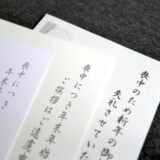 喪中のため新年の御
失礼させていた
喪中につき年末年始
ご挨拶はご遠慮申
喪中につき
年末年